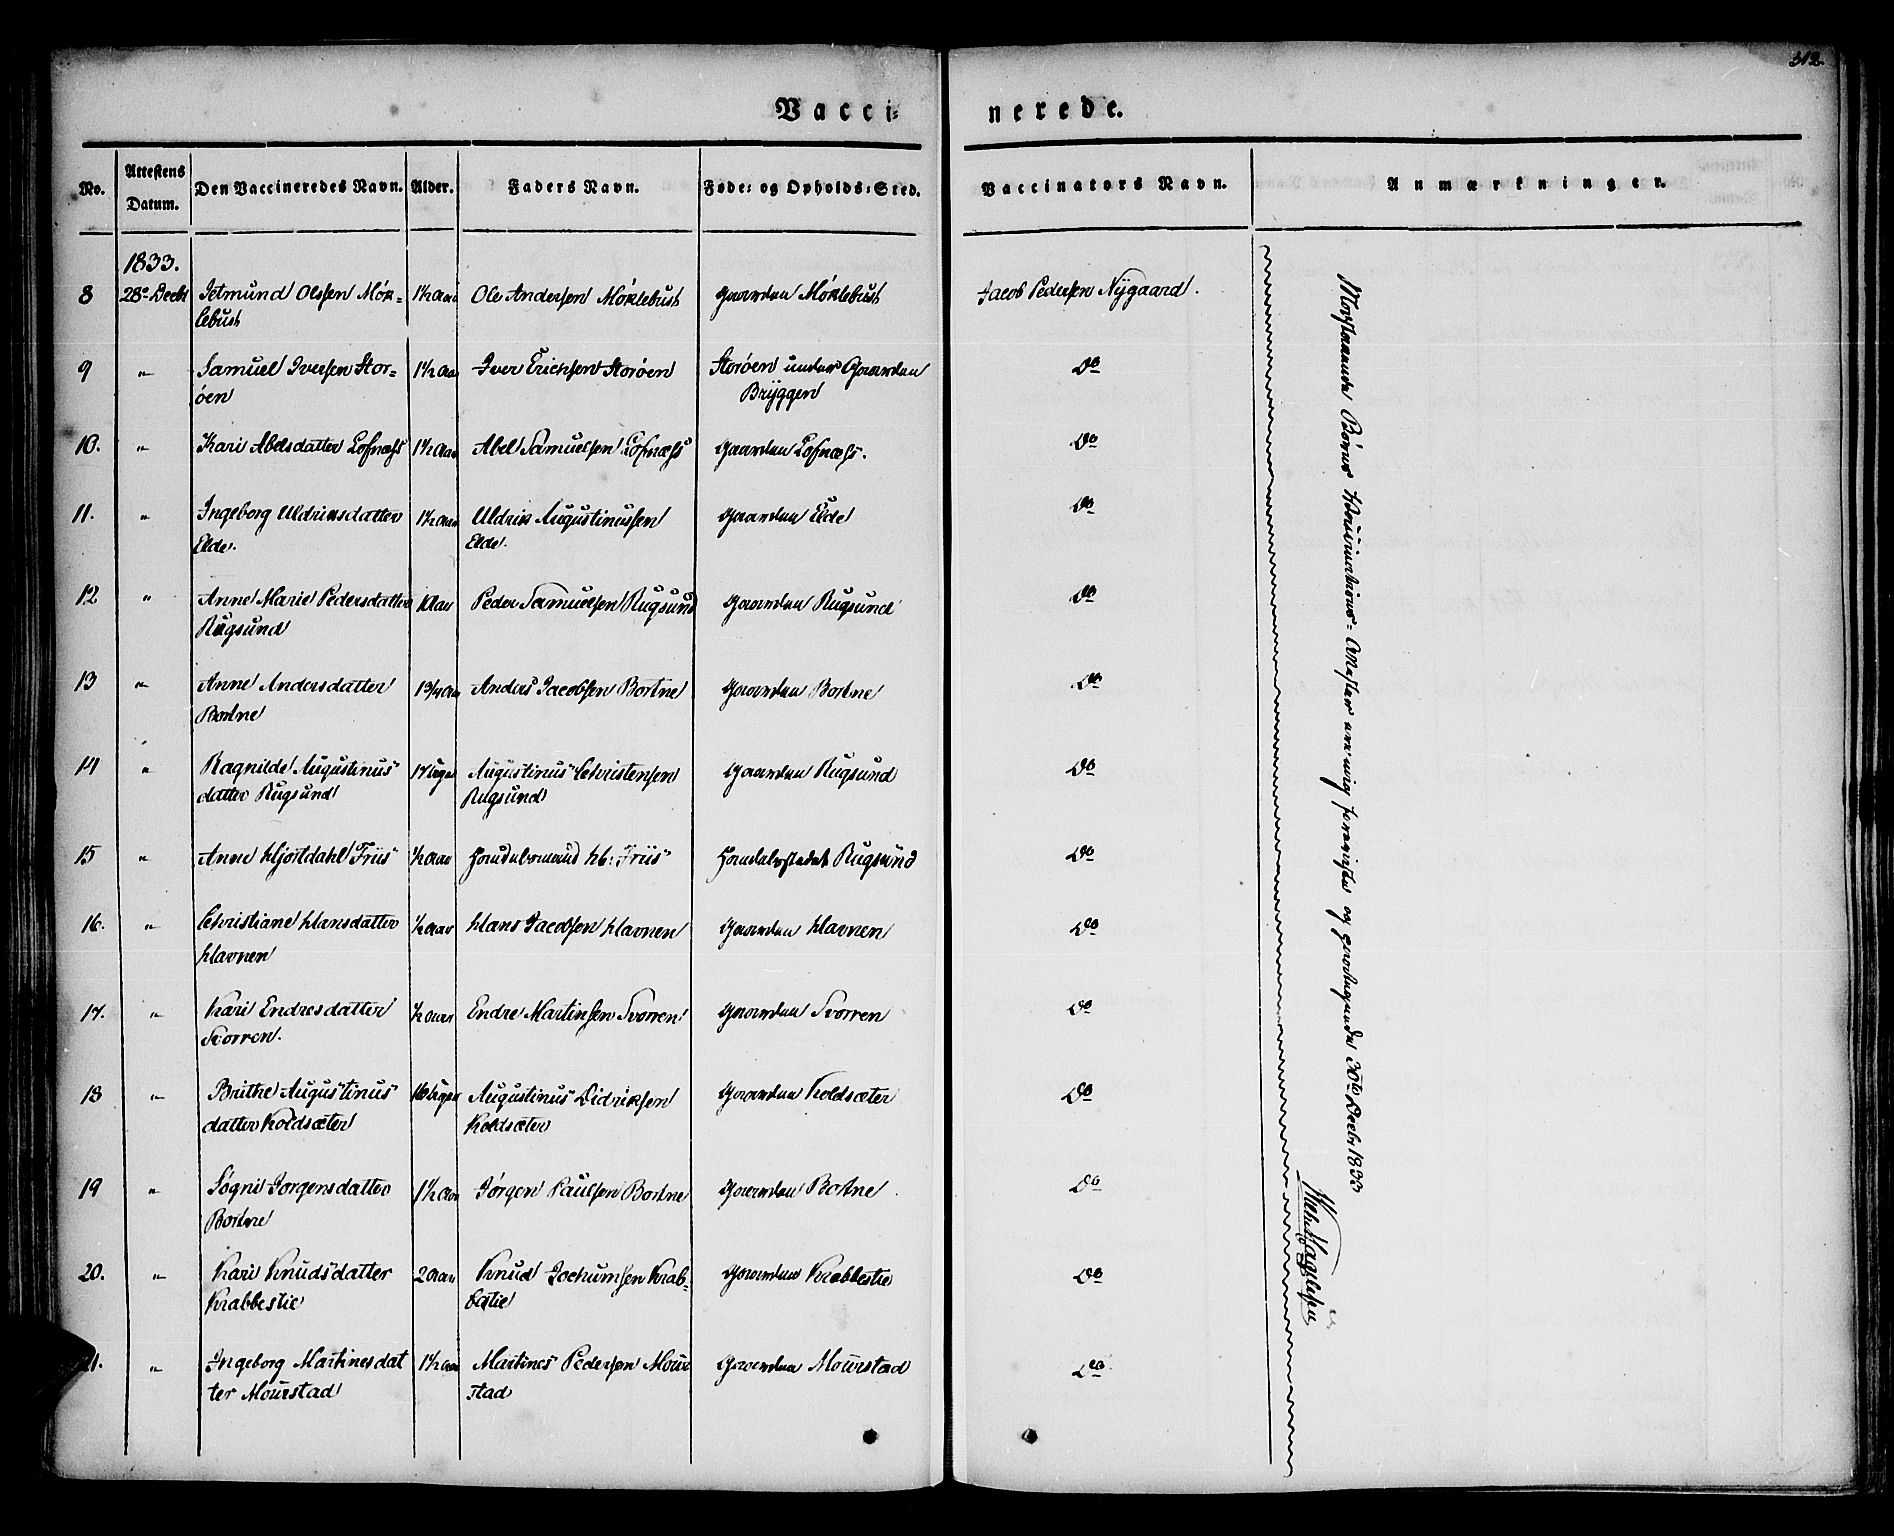 312.
Vacci=nerede.
No. Attestens Datum. Den Vaccineredes Navn. Alder. Faders Navn. Føde= og Opholds=Sted. Vaccinators Navn. Anmærkninger.
1833.
8 28de Decbr Jetmund Olssen Møk= 1½ Aar Ole Andersen Møklebust Gaarden Møklebust Jacob Pedersen Nÿgaard.
lebust
9 " Samuel Iversen Stor= 1½ Aar Iver Erichsen Storøen Storøen under Gaarden Do
øen Brÿggen
10. " Kari Abelsdatter Lofnæss 1½ Aar Abel Samuelsen Lofnæss Gaarden Lofnæss. Do
11. " Ingeborg Uldriksdatter 1½ Aar Uldrik Augustinussen Gaarden Elde Do
Elde. Elde.
12 " Anne Marie Pedersdatter 1 Aar Peder Samuelsen Rugsund Gaarden Rugsund Do
Rugsund
13 " Anne Andersdatter 1¾ Aar Anders Jacobsen Bortne Gaarden Bortne Do
Bortne
14 " Ragnilde Augustinus 17 Uger Augustinus Christensen Gaarden Rugsund Do
datter Rugsund Rugsund
15 " Anne Hjortdahl Friis ½ Aar Handelsmand Hb: Friis Handelsstedet Rugsund Do
16. " Christiane Hansdatter ½ Aar Hans Jacobsen Havnen Gaarden Havnen Do
Havnen
17. " Kari Endresdatter ½ Aar Endre Martinsen Svorren Gaarden Svorren Do
Svorren.
18 " Brithe Augustinus 16 Uger Augustinus Didriksen Gaarden Koldsæter Do
datter Koldsæter Koldsæter
19 " Søgni Jorgensdatter 1½ Aar Jørgen Paulsen Bortne Gaarden Bortne Do
Bortne
20. " Kari Knudsdatter 2 Aar Knud Jochumsen Krab= Gaarden Krabbestie Do
Krabbestie bestie
21. " Ingeborg Martinesdat 1½ Aar Martines Pedersen Mour Gaarden Mourstad Do
ter Mourstad stad
Børns Vaccinations=Attester ere mig foreviste og 30te Decbr 1833